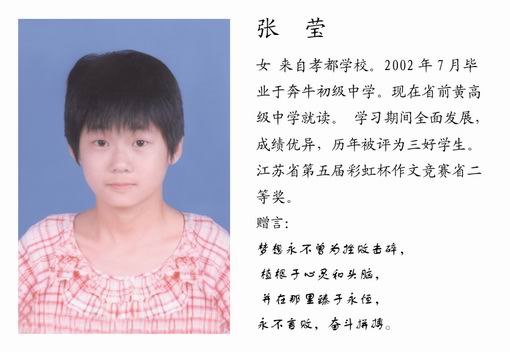 张 莹
女 来自孝都学校。2002年7月毕
业于奔牛初级中学。现在省前黄高
级中学就读。 学习期间全面发展，
成绩优异，历年被评为三好学生。
江苏省第五届彩虹杯作文竞赛省二
等奖。
赠言：
梦想永不曾为挫败击碎，
植根于心灵和头脑，
并在那里臻于永恒，
永不言败，奋斗拼搏。